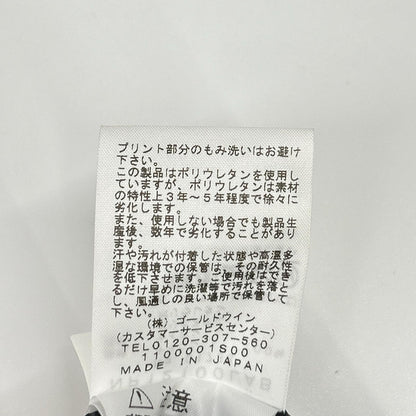 プリント部分のもみ洗いはお避け
下さい。
この製品はポリウレタンを使用し
ていますが、ポリウレタンは素材
の特性上3年～5年程度で徐々に
劣化します。
また、使用しない場合でも製品生
産後、数年で劣化することがあり
ます。
汗や汚れが付着した状態や高温多
湿な環境での保管は、その耐久性
を低下させます。ご使用後はでき
るだけ早めに洗濯等で汚れを落と
し、風通しの良い場所で保管して
下さい。
(株) ゴールドウイン
(カスタマーサービスセンター)
TEL0120-307-560
1100001S00
MADE IN JAPAN
注意